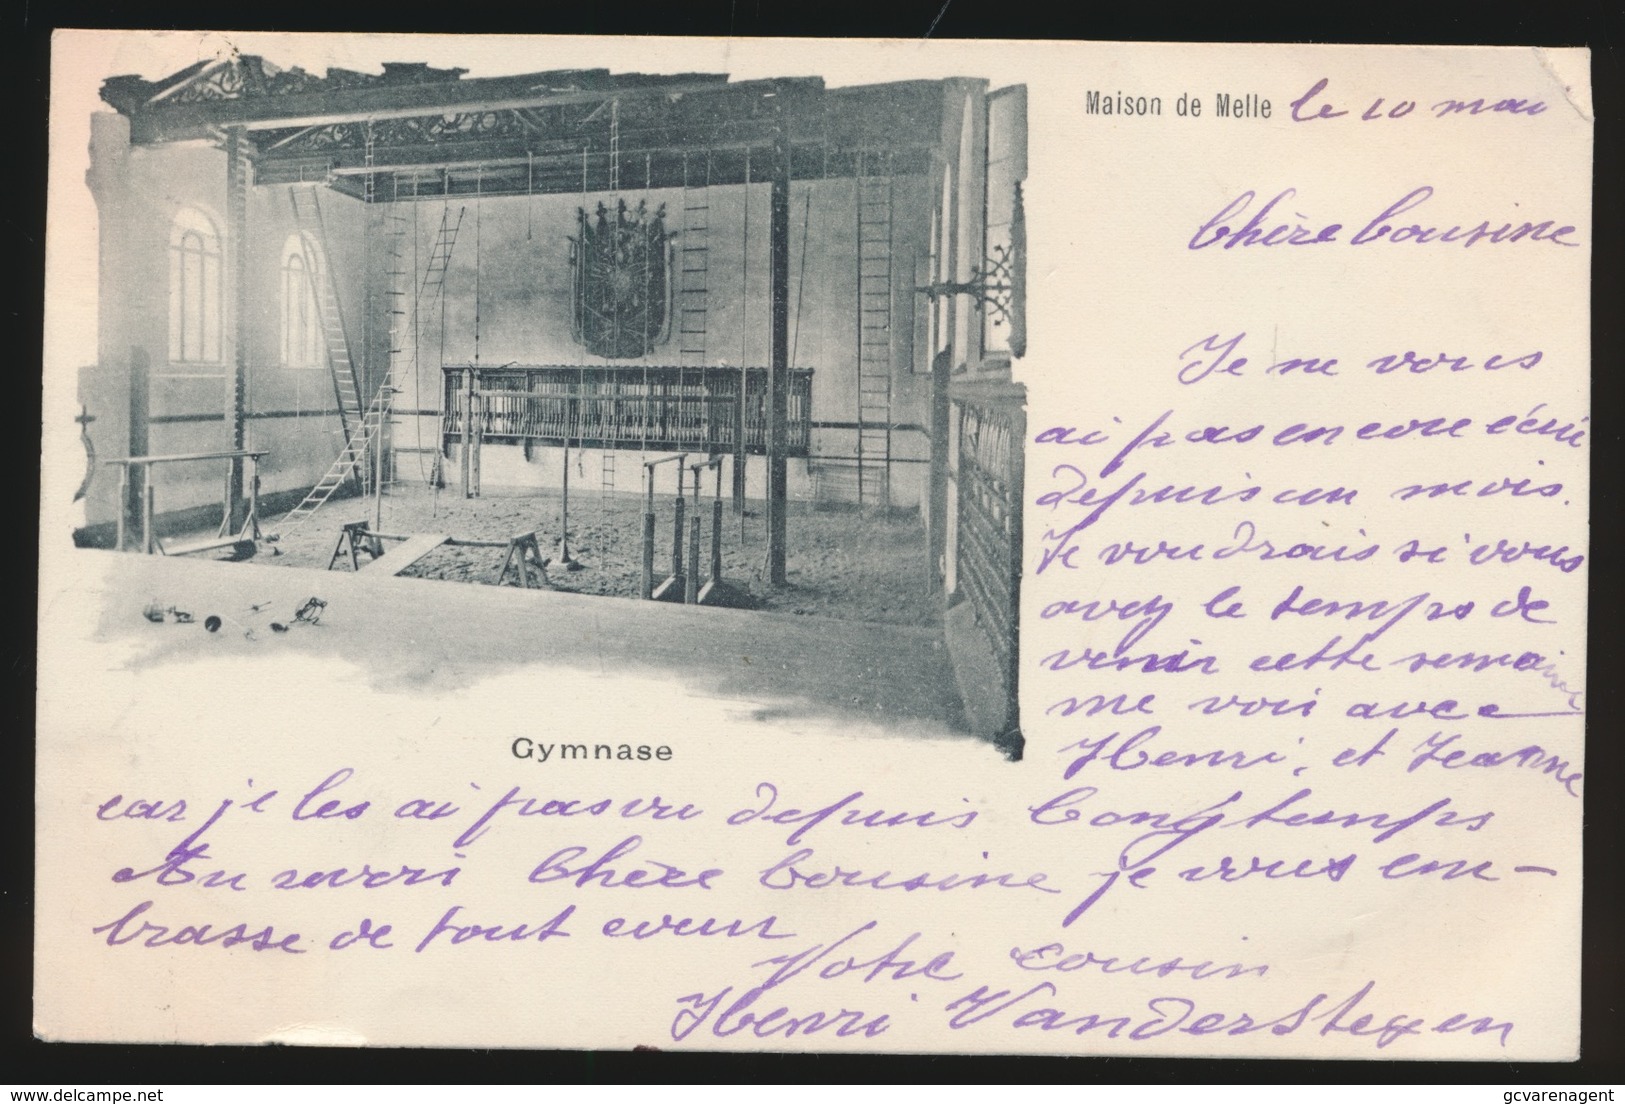 Maison de Melle le 10 mai
Chère Cousine
Je ne vous
ai pas encore écrit
depuis un mois.
Je voudrais si vous
avez le temps de
venir cette semaine
me voir avec
Henri, et Jeanne
Gymnase
car je les ai pas vu depuis longtemps
Au revoir Chère Cousine je vous em-
brasse de tout coeur
Votre cousin
Henri Vanderstegen
delcampe.net
gcvarenagent